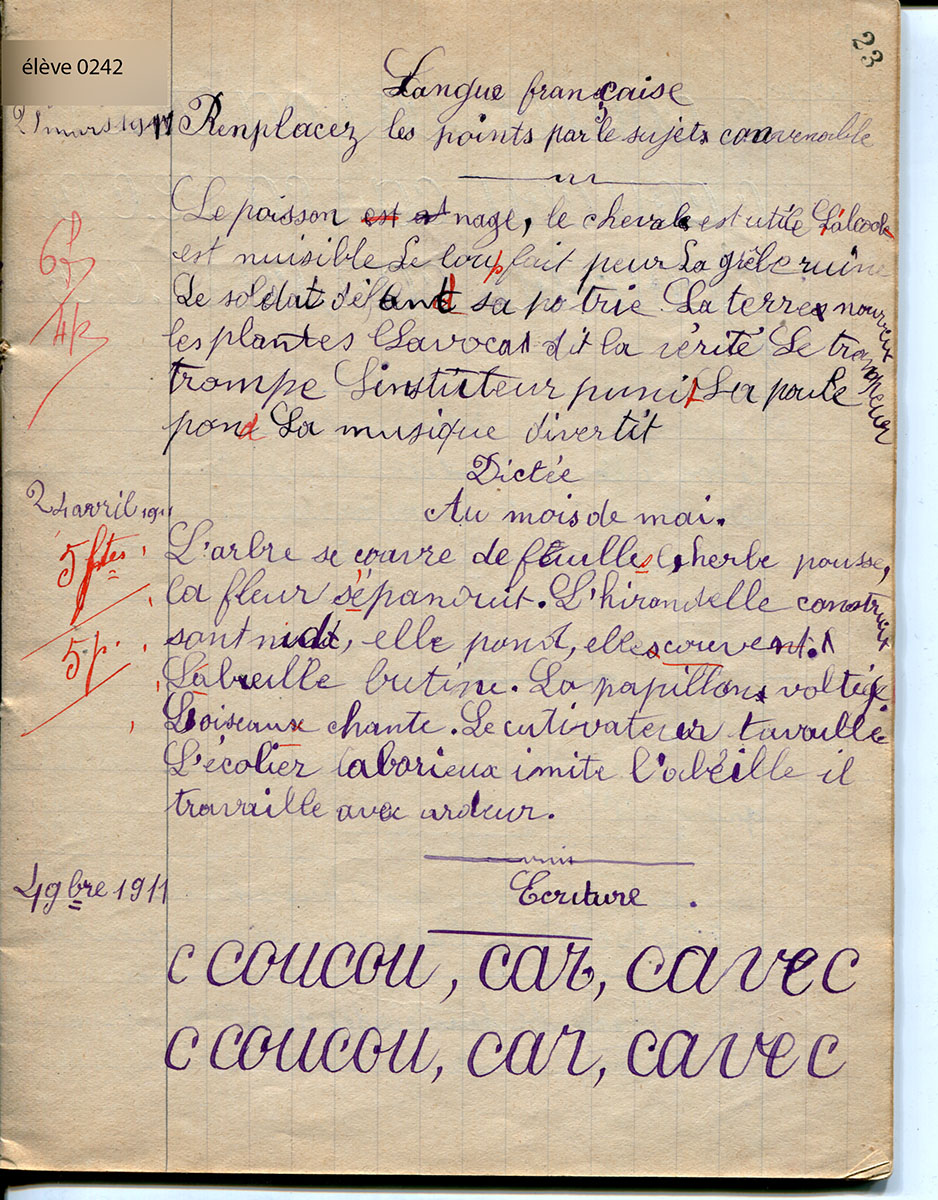 23
élève 0242
Langue française
21 mars 1911 Renplacez les points par le sujets convenable
Le poisson est nage, le cheval est utile L'alcool
est nuisible Le loup fait peur La grêle ruine
Le soldat défand sa patrie La terre nourrit
les plantes L'avocat dit la vérité Le trompeur
trompe L'instituteur punit La poule
pond La musique divertit
6 f
4 p
Dictée
24 avril 1911
Au mois de mai.
5 ftes
5 p.
L'arbre se couvre de feuilles l'herbe pousse,
la fleur s'épanouit. L'hirondelle construit
sont nid, elle pond, elle couvent.
L'abeille butine. La papillon voltige.
L'oiseaux chante. Le cutivateur tavaille
L'écolier laborieux imite l'abéille il
travaille avec ardeur.
4 9bre 1911
Ecriture.
c coucou, car, cavec
c coucou, car, cavec